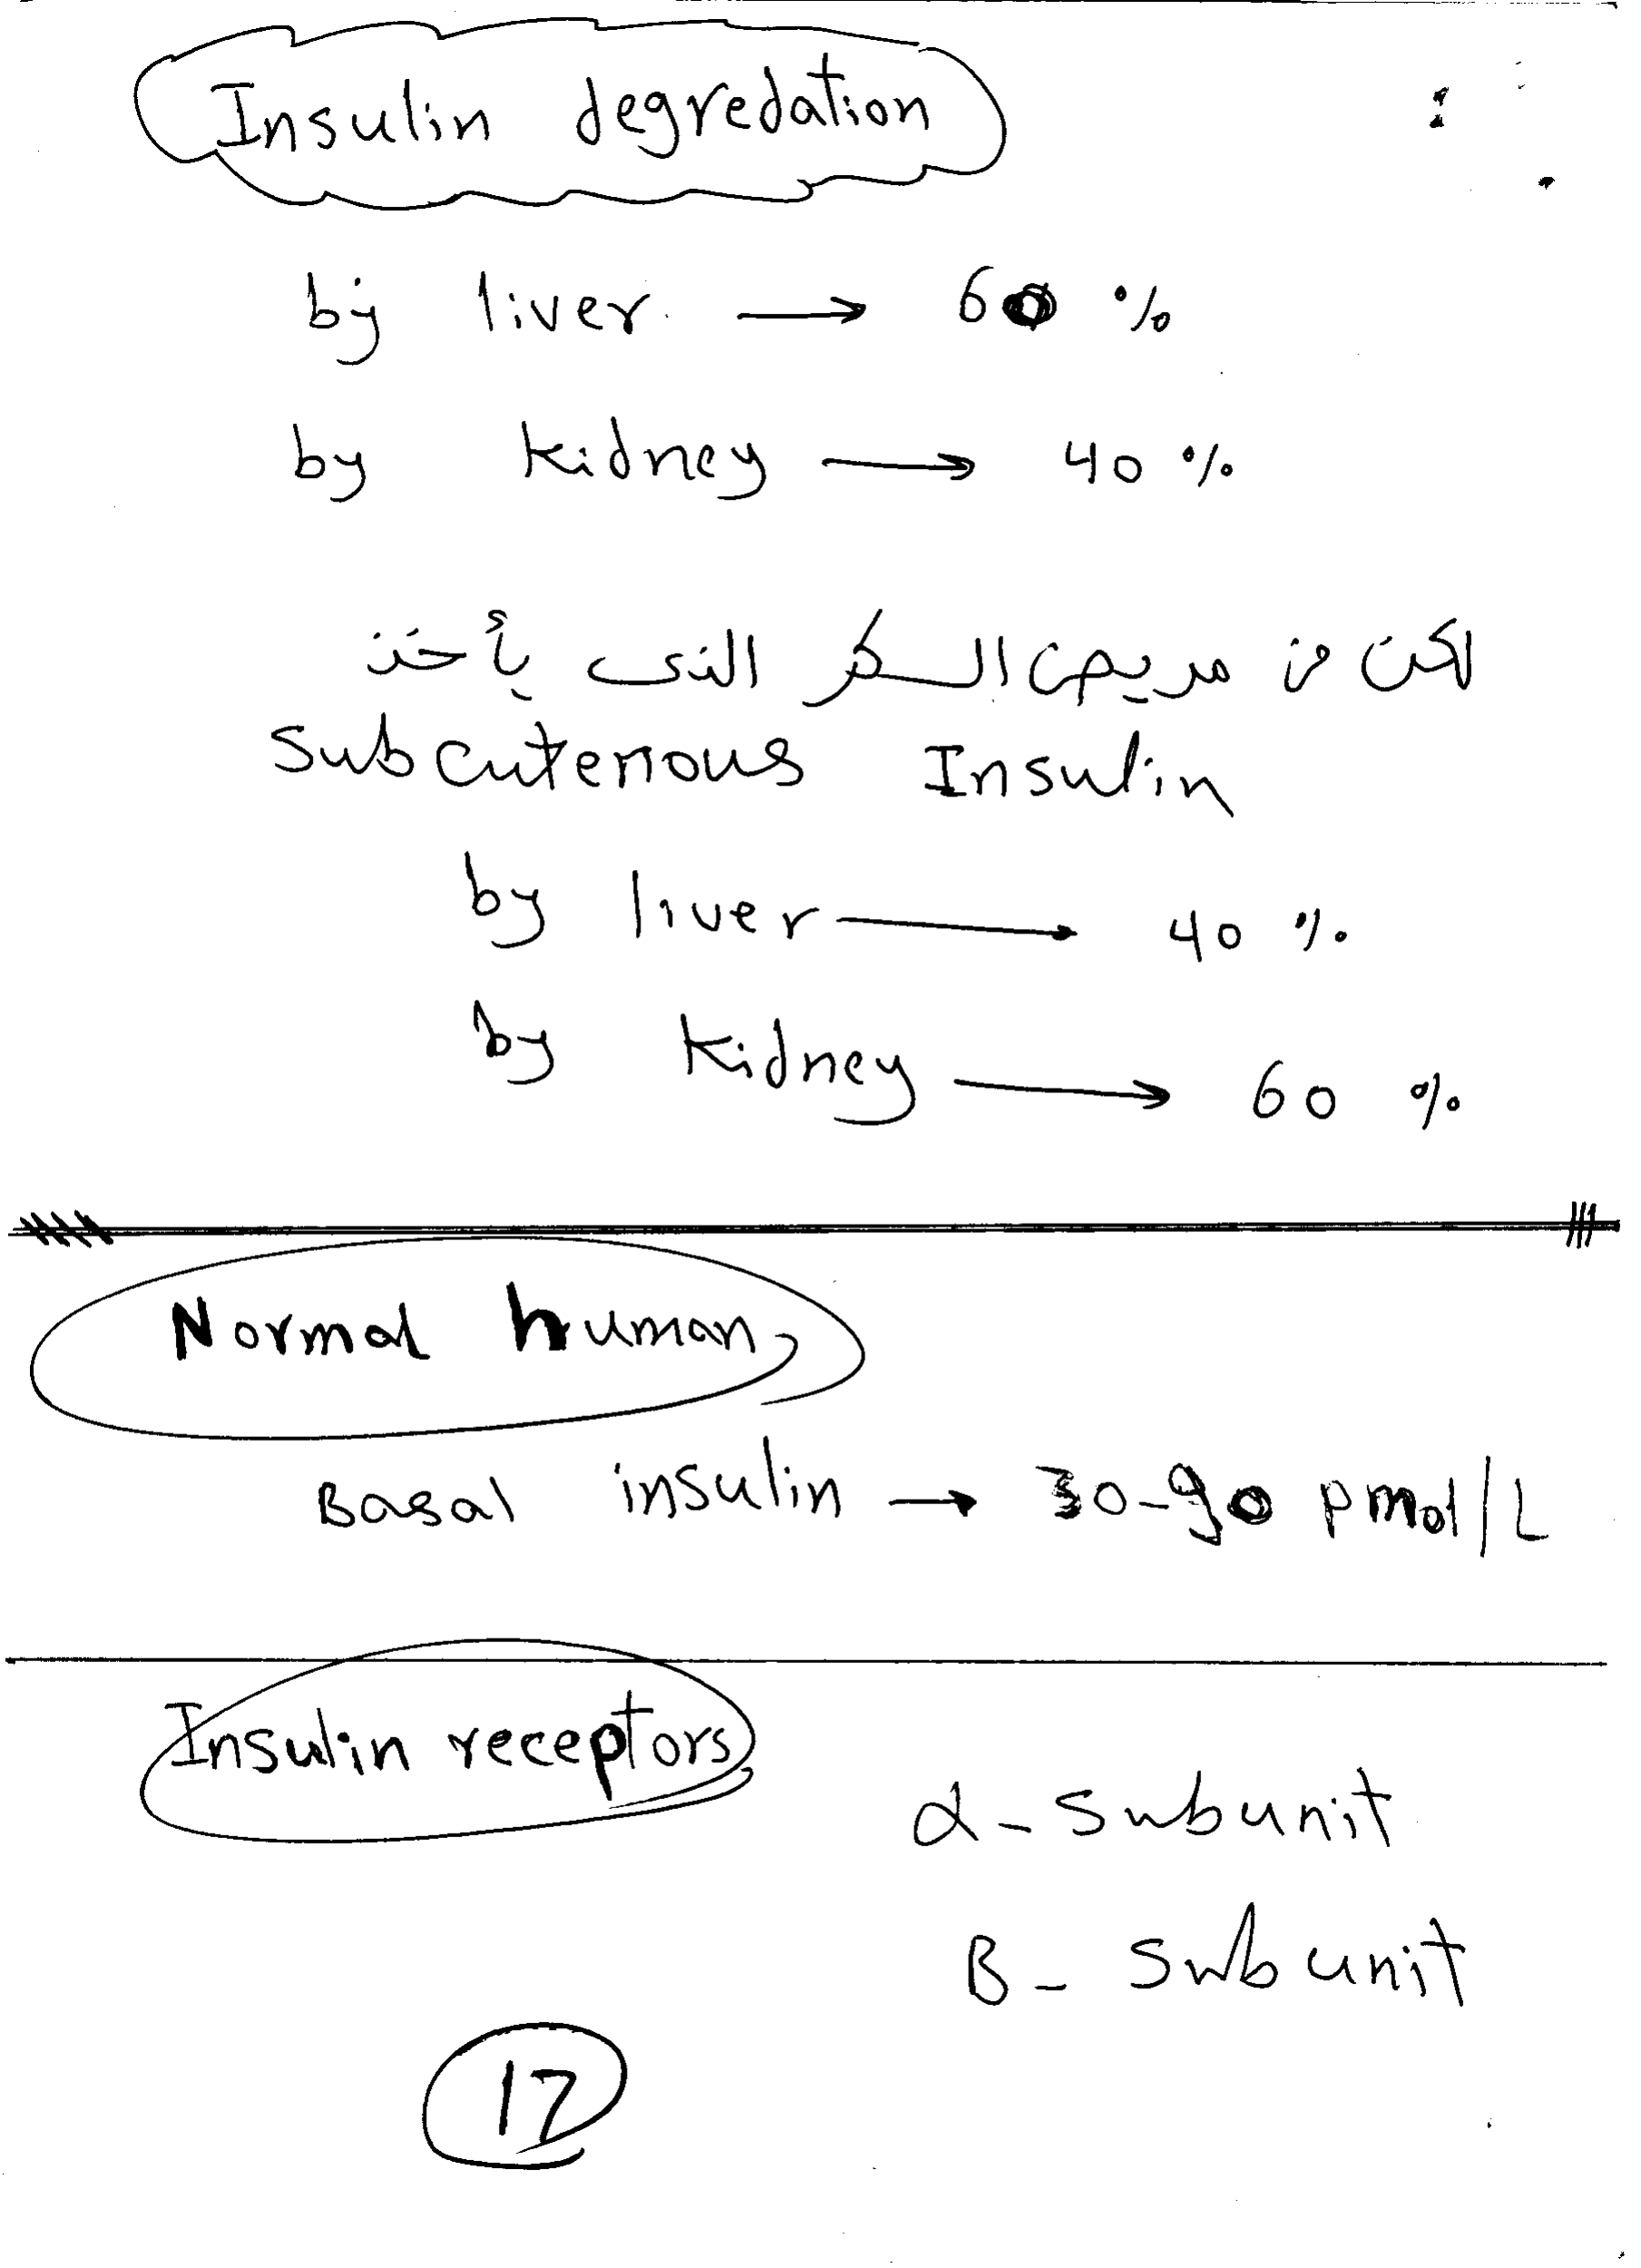 Insulin degredation
by liver → 60 %
by kidney → 40 %
لكن فى مريض السكر الذى يأخذ
Subcutenous Insulin
by liver → 40 %
by kidney → 60 %
Normal human
Basal insulin → 30-90 pmol/L
Insulin receptors
α - Subunit
B - Subunit
17